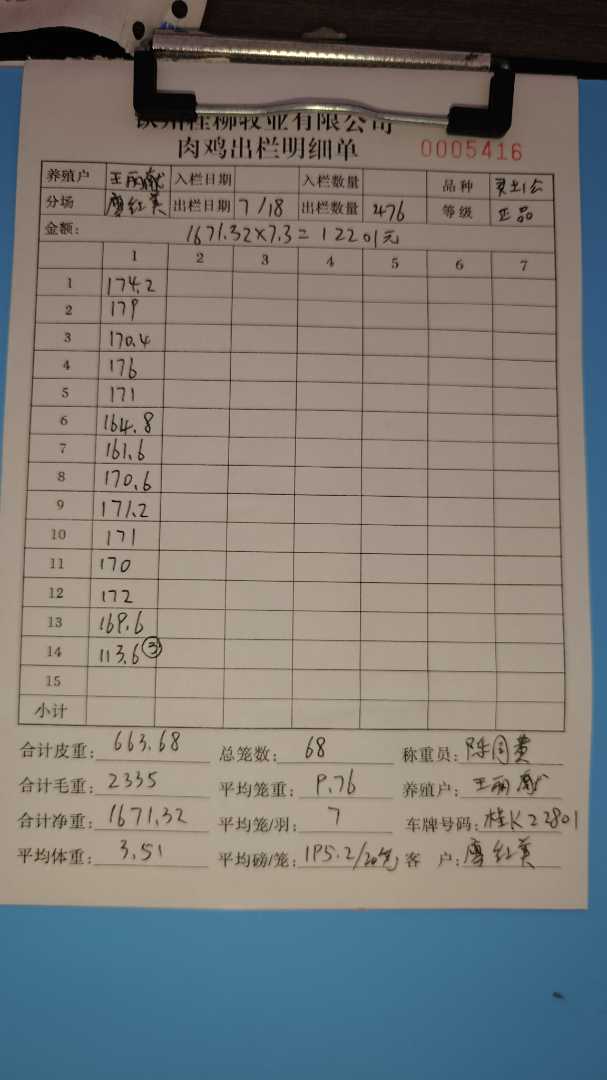 钦州桂柳牧业有限公司
肉鸡出栏明细单 0005416
养殖户 王丽 入栏日期 入栏数量 品种
分场 廖红英 出栏日期 7/18 出栏数量 476 等级 正品
金额: 1671.32×7.3=12201元
1 2 3 4 5 6 7
1 174.2
2 179
3 170.4
4 176
5 171
6 164.8
7 161.6
8 170.6
9 171.2
10 171
11 170
12 172
13 169.6
14 113.6 ③
15
小计
合计皮重: 663.68 总笼数: 68 称重员:
合计毛重: 2335 平均笼重: 9.76 养殖户: 王丽
合计净重: 1671.32 平均笼/羽: 7 车牌号码: 桂K22801
平均体重: 3.51 平均磅/笼: 195.2/20笼 客户: 廖红英